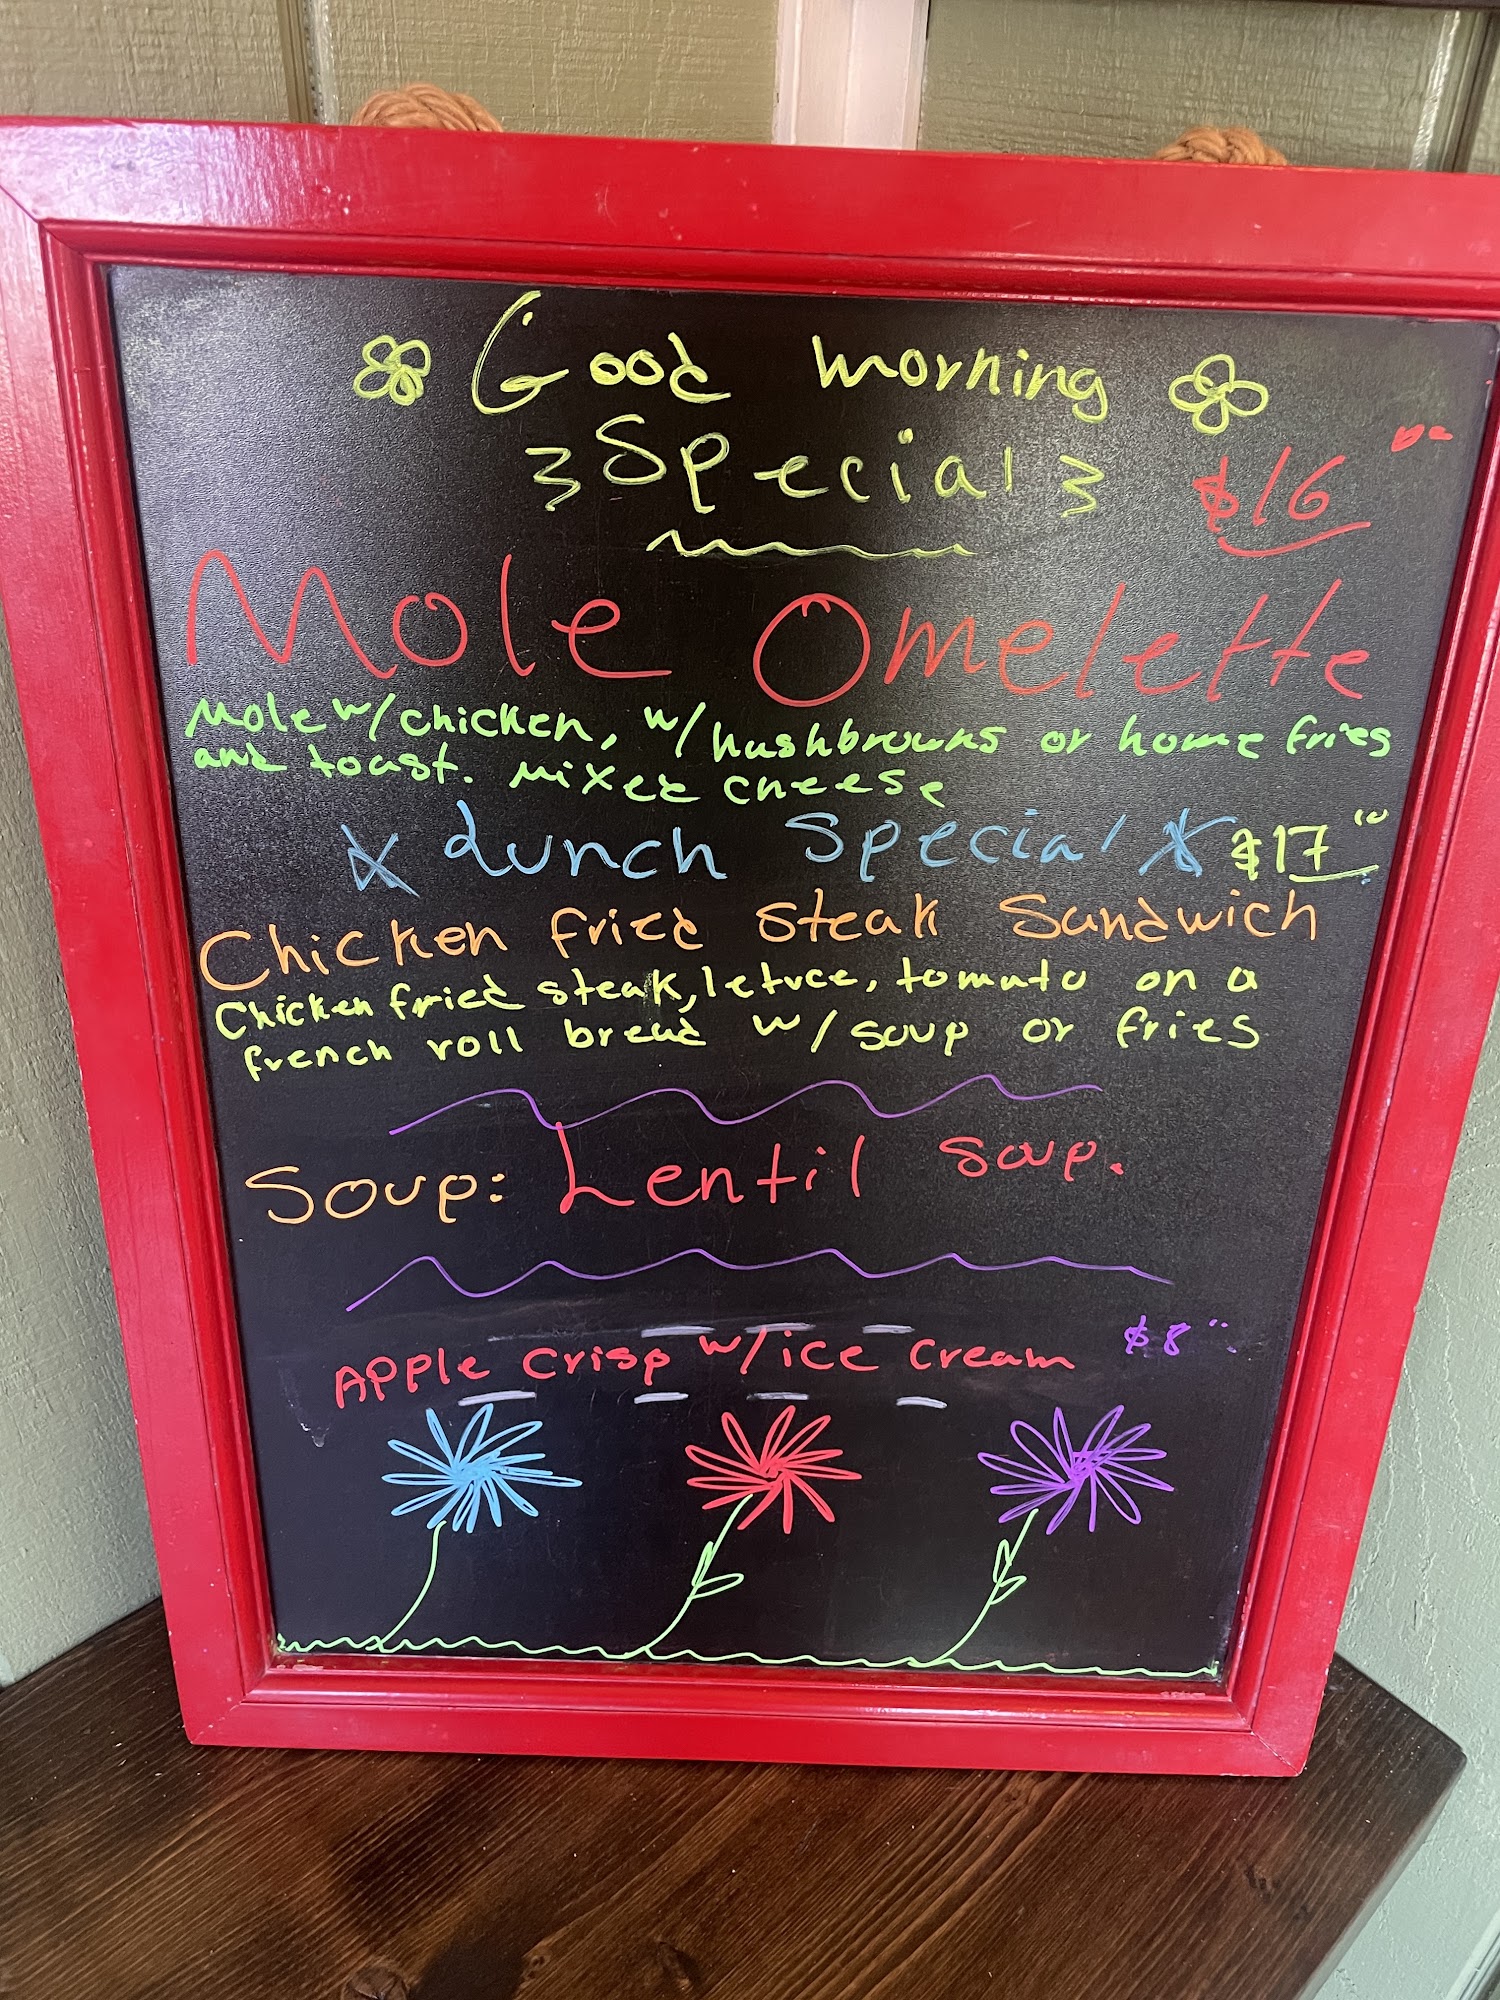 Good morning
Special
$16 00
Mole Omelette
Mole w/chicken, w/hashbrowns or home fries
and toast. mixed cheese
Lunch Special $17 00
Chicken fried steak Sandwich
Chicken fried steak, letuce, tomato on a
french roll bread w/soup or fries
Soup: Lentil Soup.
Apple crisp w/ice cream $8